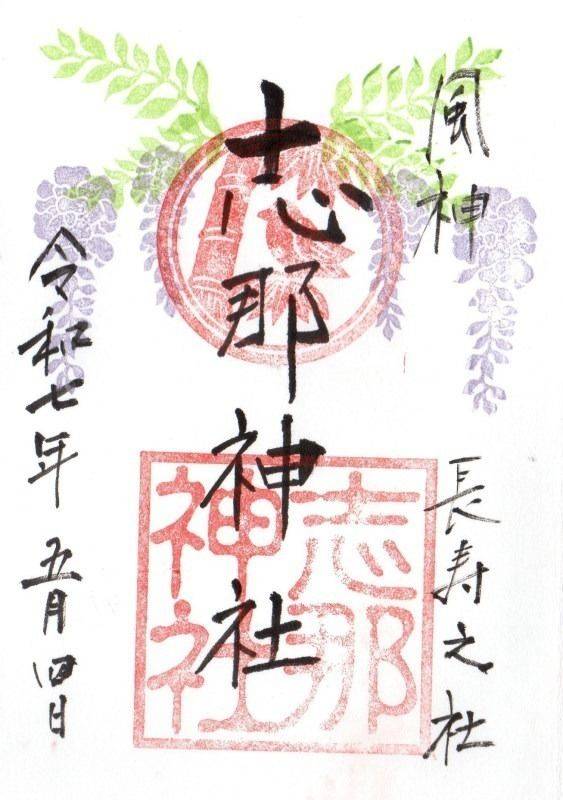 風神
長寿之社
志那神社
志那
神社
令和七年五月四日